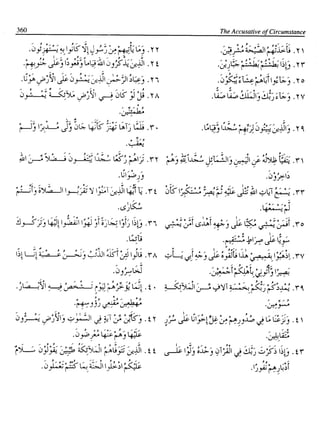 360 The Accusative of Circumstance
٢١. فَأَخَذَتْهُمُ الصَّيْحَةُ مُشْرِقِينَ.
٢٢. وَمَا يَأْتِيهِم مِّن رَّسُولٍ إِلَّا كَانُوا بِهِ يَسْتَهْزِئُونَ.
٢٣. وَإِذَا بَطَشْتُم بَطَشْتُمْ جَبَّارِينَ.
٢٤. الَّذِينَ يَذْكُرُونَ اللهَ قِيَامًا وَقُعُودًا وَعَلَى جُنُوبِهِمْ.
٢٥. وَجَاءُوا أَبَاهُمْ عِشَاءً يَبْكُونَ.
٢٦. وَعِبَادُ الرَّحْمَنِ الَّذِينَ يَمْشُونَ عَلَى الْأَرْضِ هَوْنًا.
٢٧. وَجَاءَ رَبُّكَ وَالْمَلَكُ صَفًّا صَفًّا.
٢٨. قُل لَّوْ كَانَ فِي الْأَرْضِ مَلَائِكَةٌ يَمْشُونَ
مُطْمَئِنِّينَ.
٢٩. وَالَّذِينَ يَبِيتُونَ لِرَبِّهِمْ سُجَّدًا وَقِيَامًا.
٣٠. فَلَمَّا رَءَاهَا تَهْتَزُّ كَأَنَّهَا جَانٌّ وَلَّى مُدْبِرًا وَلَمْ
يُعَقِّبْ.
٣١. يَتَفَيَّأُ ظِلَالُهُ عَنِ الْيَمِينِ وَالشَّمَائِلِ سُجَّدًا لِلَّهِ وَهُمْ
دَاخِرُونَ.
٣٢. تَرَاهُمْ رُكَّعًا سُجَّدًا يَبْتَغُونَ فَضْلًا مِّنَ اللهِ
وَرِضْوَانًا.
٣٣. يَسْمَعُ آيَاتِ اللهِ تُتْلَى عَلَيْهِ ثُمَّ يُصِرُّ مُسْتَكْبِرًا كَأَن
لَّمْ يَسْمَعْهَا.
٣٤. يَا أَيُّهَا الَّذِينَ آمَنُوا لَا تَقْرَبُوا الصَّلَاةَ وَأَنتُمْ
سُكَارَى.
٣٥. أَفَمَن يَمْشِي مُكِبًّا عَلَى وَجْهِهِ أَهْدَى أَمَّن يَمْشِي
سَوِيًّا عَلَى صِرَاطٍ مُّسْتَقِيمٍ.
٣٦. وَإِذَا رَأَوْا تِجَارَةً أَوْ لَهْوًا انفَضُّوا إِلَيْهَا وَتَرَكُوكَ
قَائِمًا.
٣٧. اذْهَبُوا بِقَمِيصِي هَذَا فَأَلْقُوهُ عَلَى وَجْهِ أَبِي يَأْتِ
بَصِيرًا وَأْتُونِي بِأَهْلِكُمْ أَجْمَعِينَ.
٣٨. قَالُوا لَئِنْ أَكَلَهُ الذِّئْبُ وَنَحْنُ عُصْبَةٌ إِنَّا إِذًا
لَّخَاسِرُونَ.
٣٩. يُمْدِدْكُمْ رَبُّكُم بِخَمْسَةِ آلَافٍ مِّنَ الْمَلَائِكَةِ
مُسَوِّمِينَ.
٤٠. إِنَّمَا يُؤَخِّرُهُمْ لِيَوْمٍ تَشْخَصُ فِيهِ الْأَبْصَارُ.
مُهْطِعِينَ مُقْنِعِي رُءُوسِهِمْ.
٤١. وَنَزَعْنَا مَا فِي صُدُورِهِم مِّنْ غِلٍّ إِخْوَانًا عَلَى سُرُرٍ
مُّتَقَابِلِينَ.
٤٢. وَكَأَيِّن مِّنْ آيَةٍ فِي السَّمَاوَاتِ وَالْأَرْضِ يَمُرُّونَ
عَلَيْهَا وَهُمْ عَنْهَا مُعْرِضُونَ.
٤٣. وَإِذَا ذَكَرْتَ رَبَّكَ فِي الْقُرْآنِ وَحْدَهُ وَلَّوْا عَلَى
أَدْبَارِهِمْ نُفُورًا.
٤٤. الَّذِينَ تَتَوَفَّاهُمُ الْمَلَائِكَةُ طَيِّبِينَ يَقُولُونَ سَلَامٌ
عَلَيْكُمُ ادْخُلُوا الْجَنَّةَ بِمَا كُنتُمْ تَعْمَلُونَ.